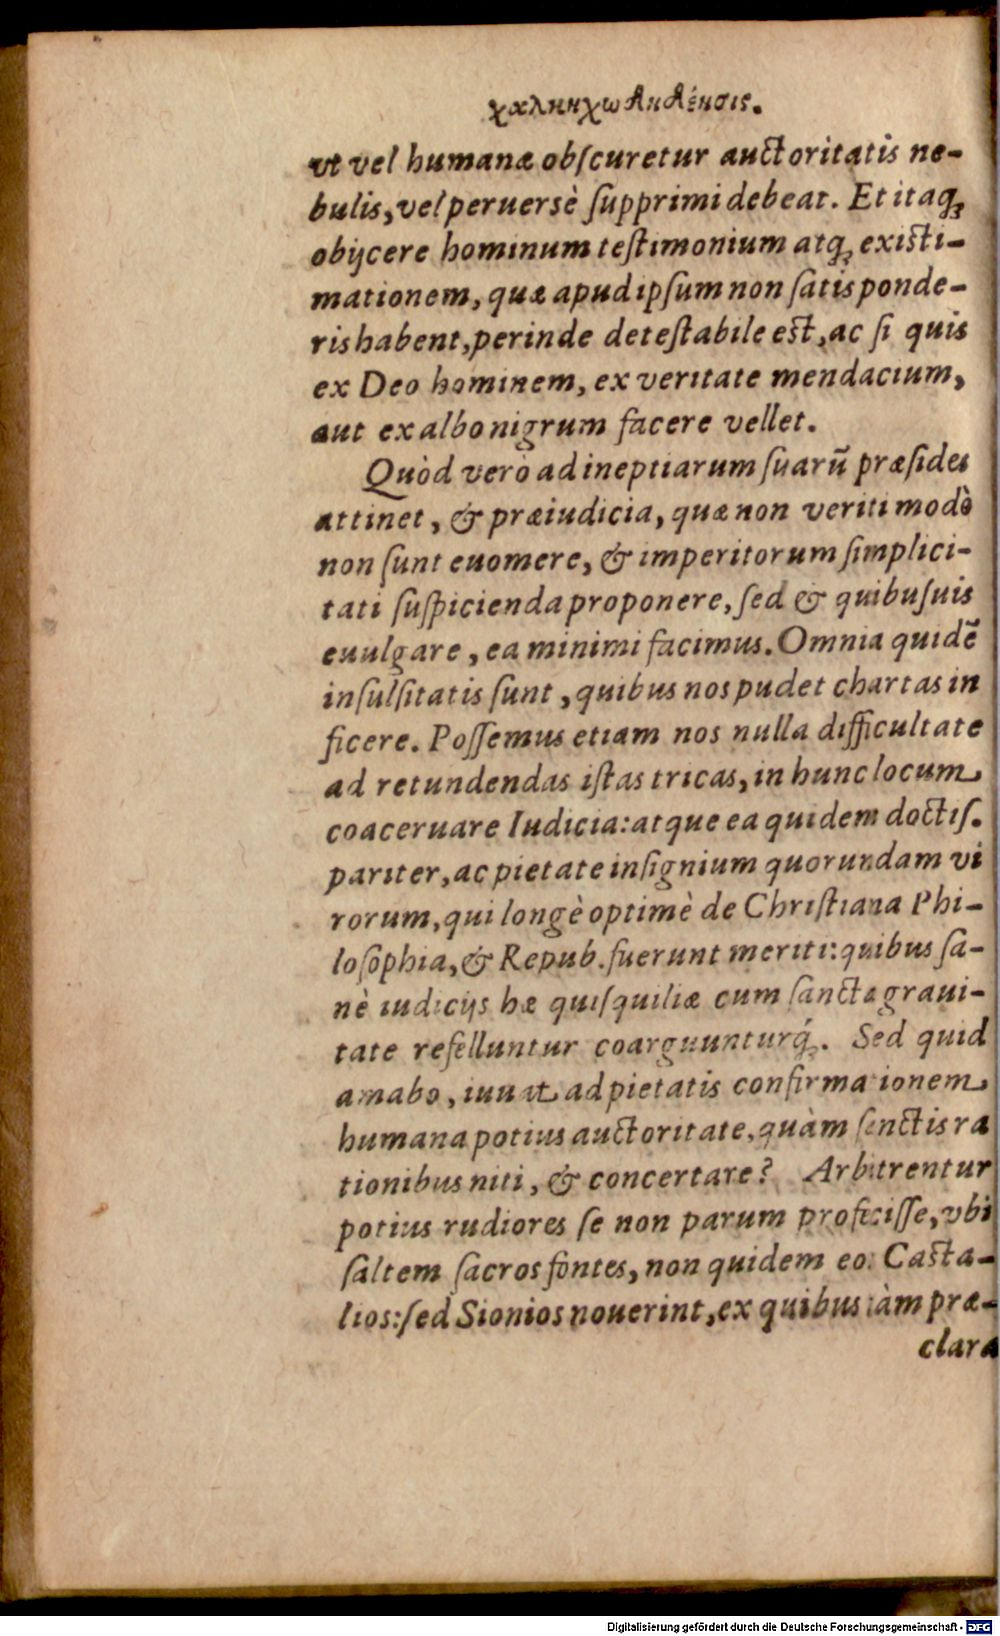 ut vel humanæ obſcuretur auctoritatis ne-
bulis, vel peruersè ſupprimi debeat. Et itaq;
obijcere hominum teſtimonium atq; existi-
mationem, quæ apud ipſum non ſatis ponde-
ris habent, perinde deteſtabile est, ac ſi quis
ex Deo hominem, ex veritate mendacium,
aut ex albo nigrum facere vellet.
Quòd verò ad ineptiarum ſuarū præſides
attinet, & præiudicia, quæ non veriti modò
non ſunt euomere, & imperitorum ſimplici-
tati ſuſpicienda proponere, ſed & quibuſuis
euulgare, ea minimi facimus. Omnia quidẽ
inſulſitatis ſunt, quibus nos pudet chartas in
ficere. Poſſemus etiam nos nulla difficultate
ad retundendas iſtas tricas, in hunc locum
coaceruare Iudicia: atque ea quidem doctiſ.
pariter, ac pietate inſignium quorundam vi
rorum, qui longè optimè de Chriſtiana Phi-
loſophia, & Repub. fuerunt meriti: quibus ſa-
nè iudicijs hæ quiſquiliæ cum ſancta graui-
tate refelluntur coarguunturq́;. Sed quid
amabo, iuuat ad pietatis confirmationem
humana potius auctoritate, quàm ſanctis ra
tionibus niti, & concertare? Arbitrentur
potius rudiores ſe non parum profeciſſe, vbi
ſaltem ſacros fontes, non quidem eos Casta-
lios: ſed Sionios nouerint, ex quibus iàm præ-
clara
Digitalisierung gefördert durch die Deutsche Forschungsgemeinschaft - DFG